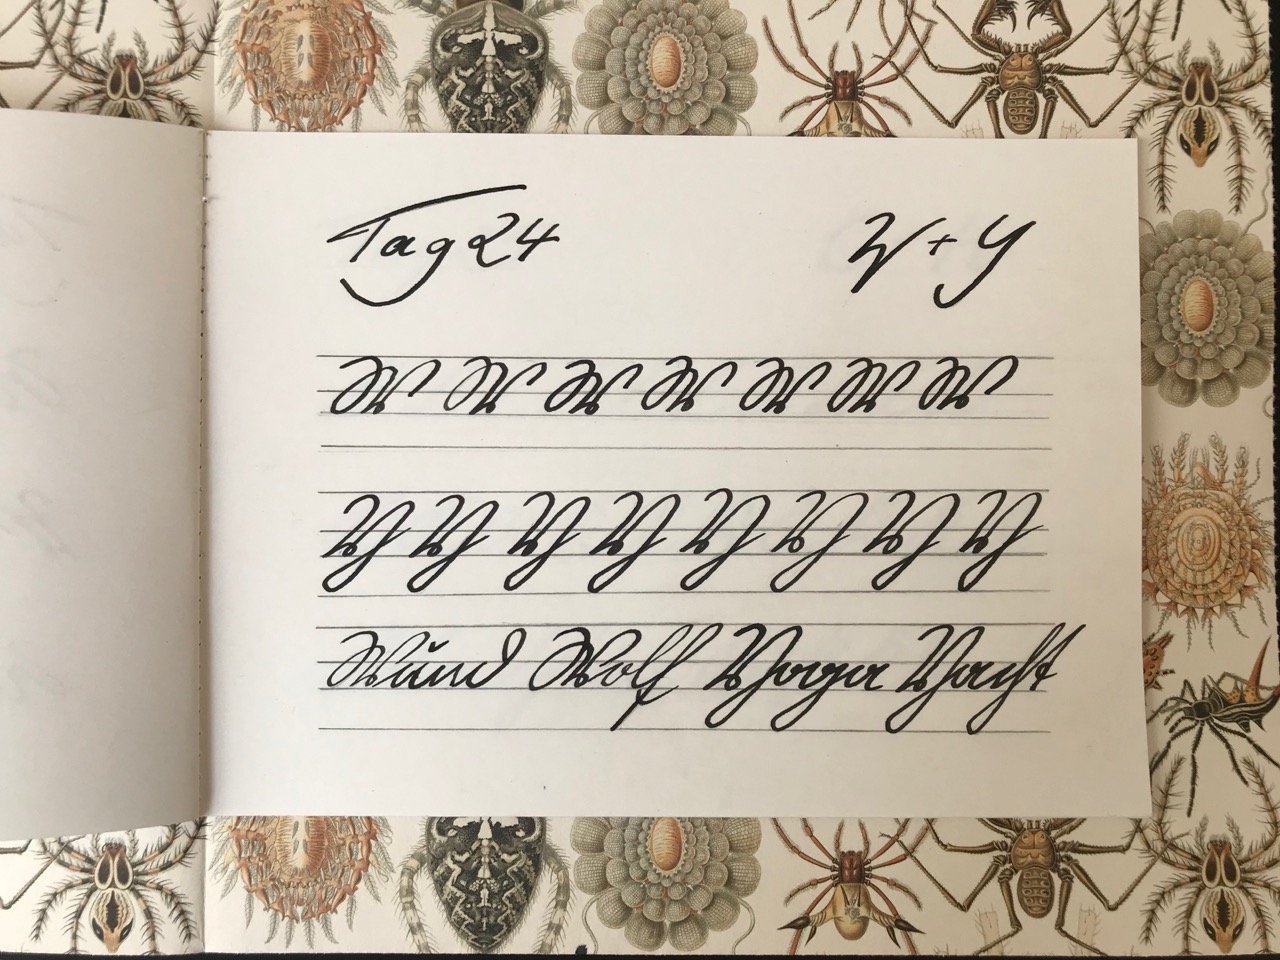 Tag 24 W + Y
W W W W W W W
Y Y Y Y Y Y Y Y
Wund Wolf Yoga Yacht